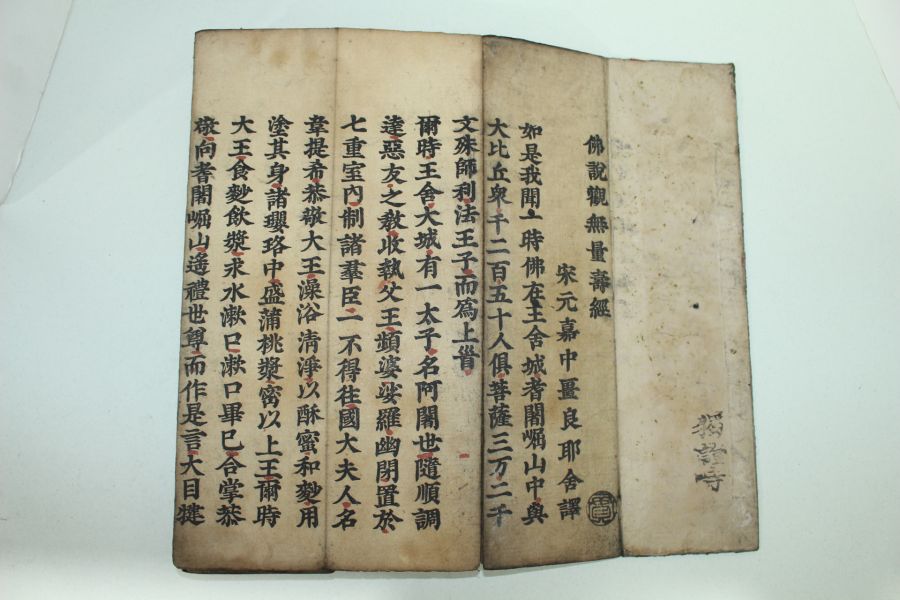 佛說觀無量壽經
宋元嘉中畺良耶舍譯
如是我聞一時佛在王舍城耆闍崛山中與
大比丘衆千二百五十人俱菩薩三万二千
文殊師利法王子而爲上首
爾時王舍大城有一太子名阿闍世隨順調
達惡友之教收執父王頻婆娑羅幽閇置於
七重室內制諸羣臣一不得往國大夫人名
韋提希恭敬大王澡浴清淨以酥蜜和麨用
塗其身諸瓔珞中盛蒲桃漿密以上王爾時
大王食麨飲漿求水漱口漱口畢已合掌恭
敬向耆闍崛山遙禮世尊而作是言大目揵